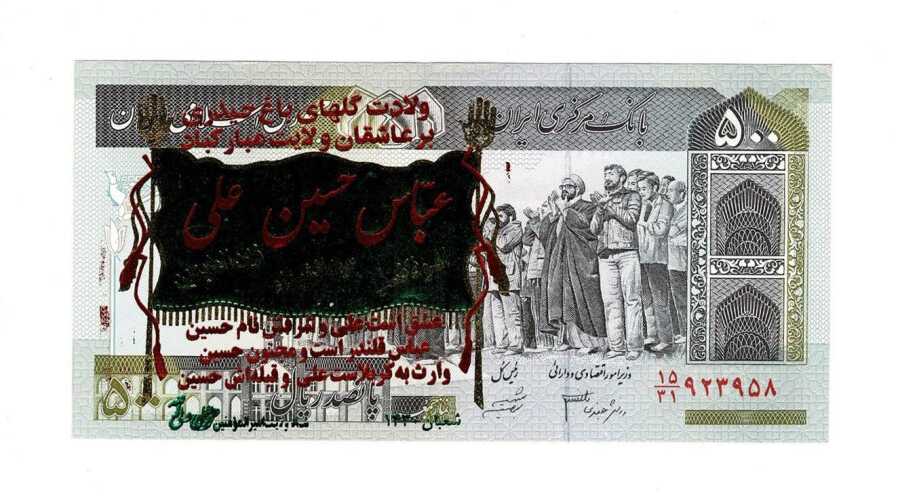 بانک مرکزی ایران
۵۰۰
ولادت گلهای باغ حیدری
بر عاشقان ولایت مبارکباد
عباس حسین علی
عشق است علی و اشرفش نام حسین
عباس قلندر است و مجنون حسین
وارث به کربلاست علی و قبله‌اش حسین
پانصد ریال
شعبان ۱۴۳۰
وزیر امور اقتصادی و دارائی
رئیس کل
۱۵/۳۱ ۹۲۳۹۵۸